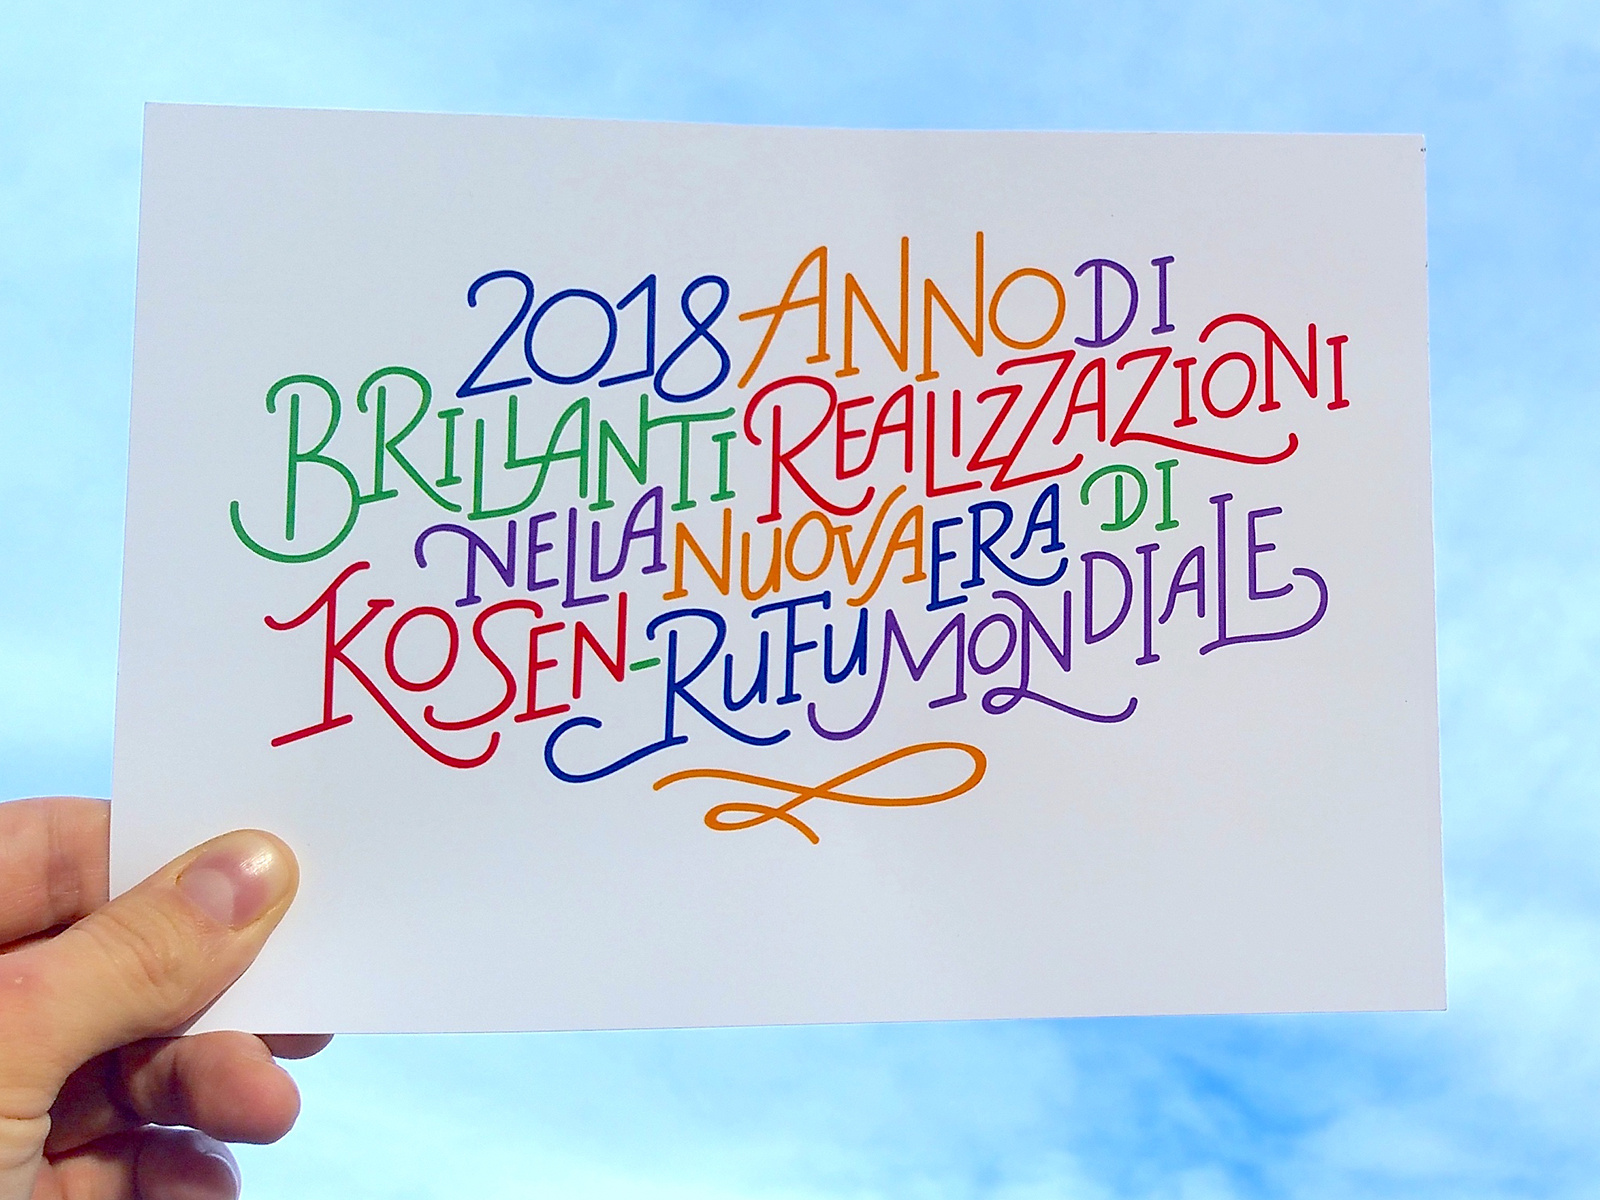 2018 ANNO DI
BRILLANTI REALIZZAZIONI
NELLA NUOVA ERA DI
KOSEN-RUFU MONDIALE